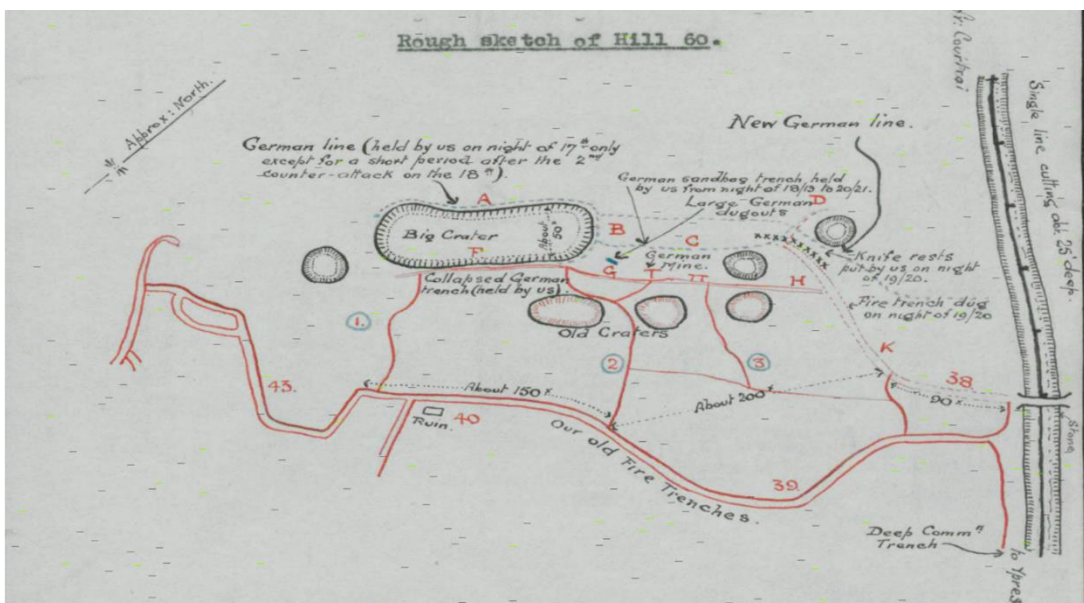 Rough sketch of Hill 60.
Approx: North.
German line (held by us on night of 17th only
except for a short period after the 2nd
counter-attack on the 18th).
New German line.
German sandbag trench, held
by us from night of 18/19 to 20/21.
Large German
dugouts
A
B
C
D
Big Crater
About
50x
F
G
German
Mine.
H
Collapsed German
trench (held by us)
Knife rests
put by us on night
of 19/20.
Fire trench dug
on night of 19/20
Old Craters
1.
2
3
K
38.
43.
About 150x
About 200x
90x
Ruin.
40
Our old Fire Trenches.
39.
Deep Commn
Trench
Courtrai
Single line cutting abt. 25' deep.
to Ypres